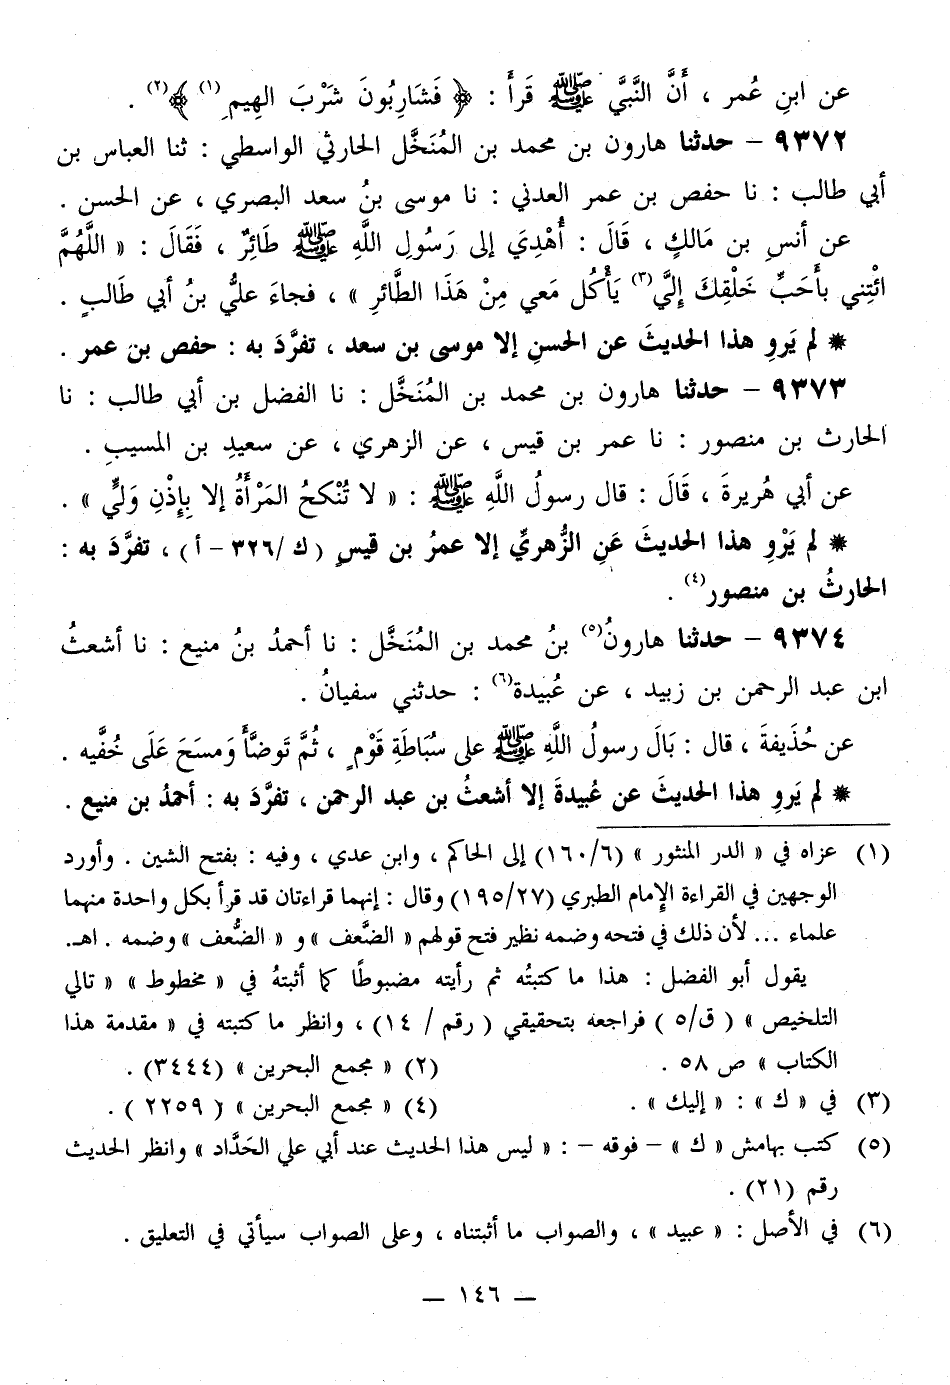 عن ابنِ عُمر ، أَنَّ النَّبيَّ ﷺ قَرأَ : ﴿ فَشَارِبُونَ شَرْبَ الهِيمِ (١) ﴾ (٢) .
٩٣٧٢ – حدثنا هارون بن محمد بن المُنَخَّل الحارثي الواسطي : ثنا العباس بن
أبي طالب : نا حفص بن عمر العدني : نا موسى بنُ سعد البصري ، عن الحسن .
عن أنسِ بن مَالكٍ ، قَالَ : أُهْدِيَ إلى رَسُولِ اللَّهِ ﷺ طَائِرٌ ، فَقَالَ : « اللَّهُمَّ
ائْتِني بأَحَبِّ خَلْقِكَ إِلَيَّ (٣) يَأْكُل مَعي مِنْ هَذَا الطَّائرِ » ، فجاءَ عليُّ بنُ أبي طَالبٍ .
* لم يَروِ هذا الحديثَ عن الحسنِ إلا موسى بن سعد ، تفرَّدَ به : حفص بن عمر .
٩٣٧٣ – حدثنا هارون بن محمد بن المُنَخَّل : نا الفضل بن أبي طالب : نا
الحارث بن منصور : نا عمر بن قيس ، عن الزهري ، عن سعيدِ بن المسيبِ .
عن أبي هُريرةَ ، قَالَ : قال رسولُ اللَّهِ ﷺ : « لا تُنْكحُ المَرْأَةُ إلا بِإِذْنِ وَلِيٍّ » .
* لم يَرْوِ هذا الحديثَ عَنِ الزُّهريِّ إلا عمرُ بن قيسٍ ( ك /٣٢٦ – أ ) ، تفرَّدَ به :
الحارثُ بن منصور (٤) .
٩٣٧٤ – حدثنا هارونُ (٥) بنُ محمد بن المُنَخَّل : نا أحمدُ بنُ منيع : نا أشعثُ
ابن عبد الرحمن بن زبيد ، عن عُبيدة (٦) : حدثني سفيانُ .
عن حُذَيفةَ ، قال : بَالَ رسولُ اللَّهِ ﷺ على سُبَاطَةِ قَوْمٍ ، ثُمَّ تَوضَّأَ وَمسَحَ عَلَى خُفَّيه .
* لم يَروِ هذا الحديثَ عن عُبيدةَ إلا أشعثُ بن عبد الرحمن ، تفرَّدَ به : أحمدُ بن منيع .
(١) عزاه في « الدر المنثور » (١٦٠/٦) إلى الحاكم ، وابن عدي ، وفيه : بفتح الشين . وأورد
الوجهين في القراءة الإمام الطبري (١٩٥/٢٧) وقال : إنهما قراءتان قد قرأ بكل واحدة منهما
علماء ... لأن ذلك في فتحه وضمه نظير فتح قولهم « الضَّعف » و « الضُّعف » وضمه . اهـ.
يقول أبو الفضل : هذا ما كتبتُه ثم رأيته مضبوطًا كما أثبتهُ في « مخطوط » « تالي
التلخيص » ( ق/٥ ) فراجعه بتحقيقي ( رقم / ١٤) ، وانظر ما كتبته في « مقدمة هذا
الكتاب » ص ٥٨ .
(٢) « مجمع البحرين » (٣٤٤٤) .
(٣) في « ك » : « إليك » .
(٤) « مجمع البحرين » ( ٢٢٥٩ ) .
(٥) كتب بهامش « ك » – فوقه – : « ليس هذا الحديث عند أبي علي الحَدَّاد » وانظر الحديث
رقم (٢١) .
(٦) في الأصل : « عبيد » ، والصواب ما أثبتناه ، وعلى الصواب سيأتي في التعليق .
— ١٤٦ —